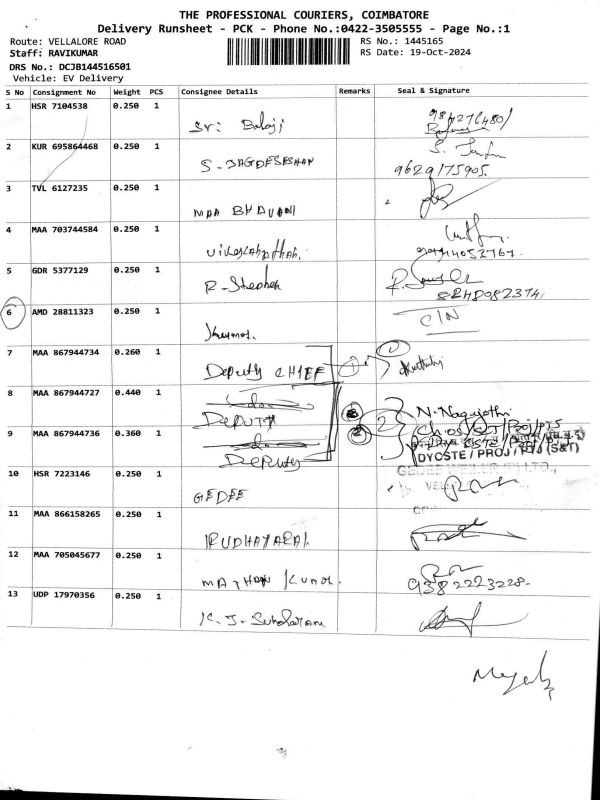 THE PROFESSIONAL COURIERS, COIMBATORE
Delivery Runsheet - PCK - Phone No.:0422-3505555 - Page No.:1
Route: VELLALORE ROAD
RS No.: 1445165
Staff: RAVIKUMAR
RS Date: 19-Oct-2024
DRS No.: DCJB144516501
Vehicle: EV Delivery
S No Consignment No Weight PCS Consignee Details Remarks Seal & Signature
1 HSR 7104538 0.250 1 Sri Balaji
2 KUR 695864468 0.250 1 S-JAGDESESHAN S.
9629175905.
3 TVL 6127235 0.250 1 MAA BHAVANI
4 MAA 703744584 0.250 1
5 GDR 5377129 0.250 1 R-Stephen
8248082374
6 AMD 28811323 0.250 1 C/N
7 MAA 867944734 0.260 1 Deputy CHIEF 1
8 MAA 867944727 0.440 1 DEPUTY 2 N. Nagajothi
9 MAA 867944736 0.360 1 DEPUTY
DYCSTE / PROJ / PTJ (S&T)
10 HSR 7223146 0.250 1 GEDEE
11 MAA 866158265 0.250 1 IRUDHAYARAJ.
12 MAA 705045677 0.250 1 MATHAN KUMAR.
9382223228-
13 UDP 17970356 0.250 1 K. J-